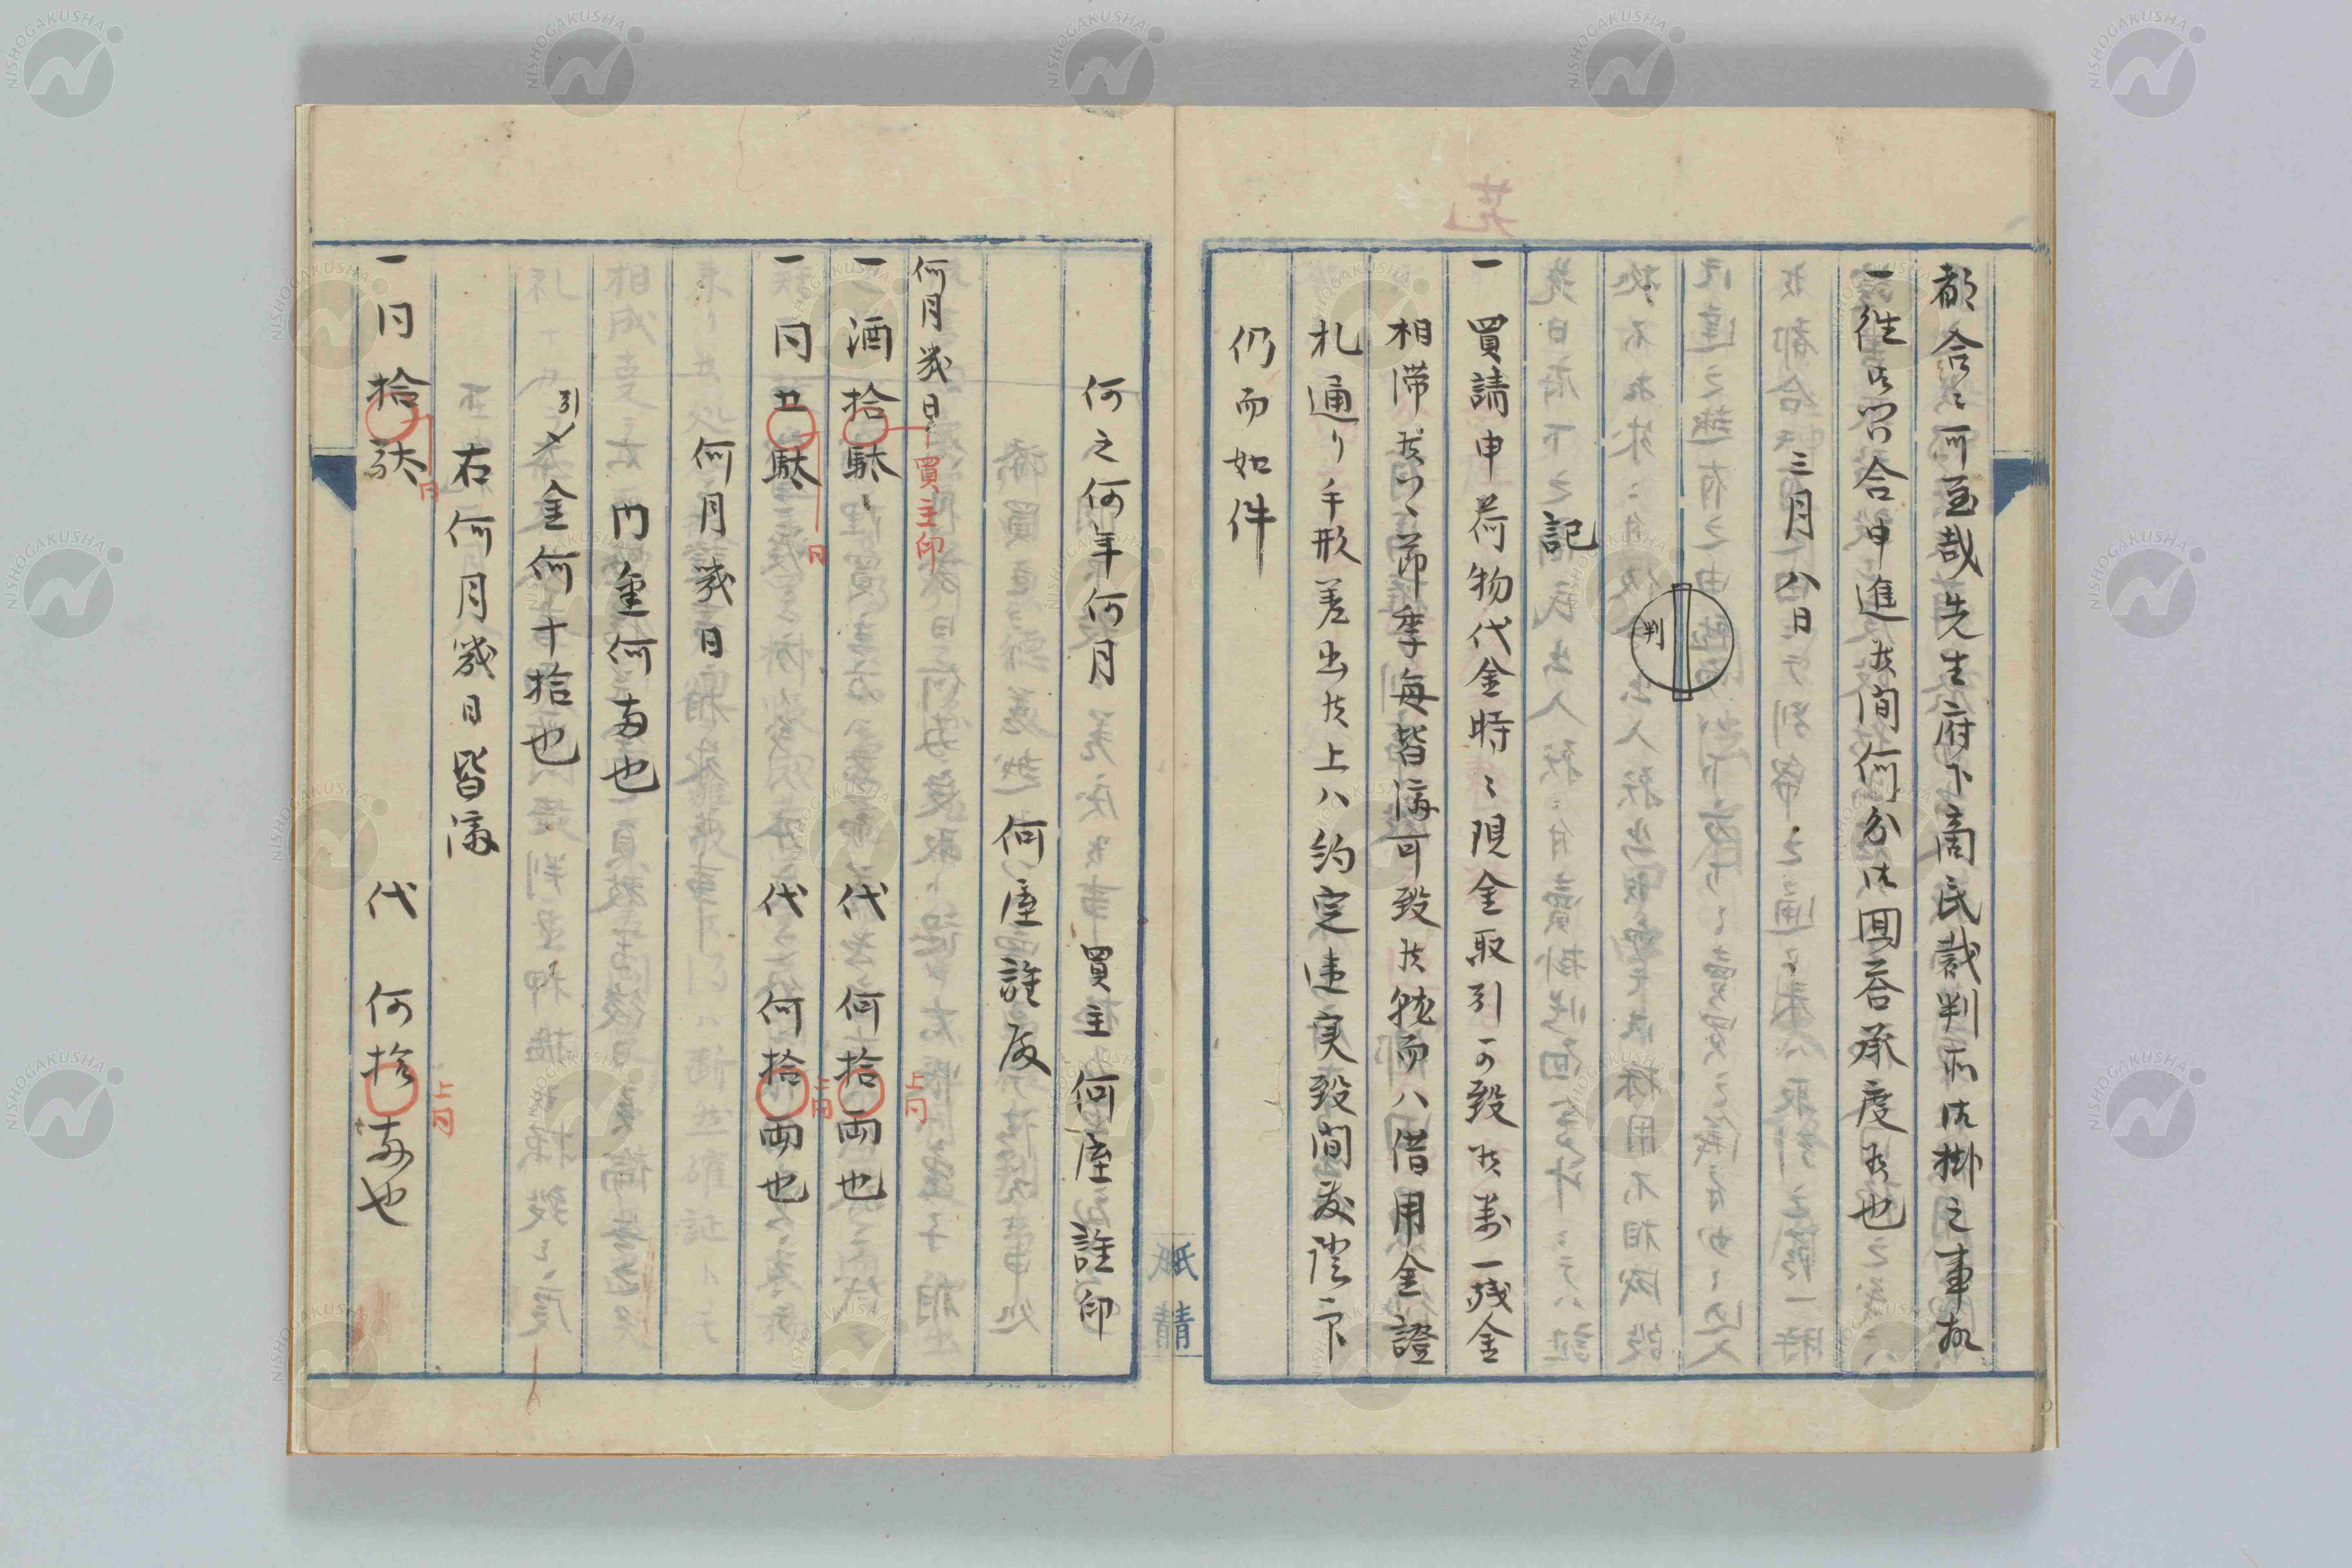 都合ニ可至哉先生府下商民裁判所御掛之事故
一往御問合申進候間何分御回答承度候也
三月八日
判
記
一買請申荷物代金時々現金取引可致候万一残金
相滞候ハヽ節季毎皆済可致候就而ハ借用金證
札通リ手形差出候上ハ約定違実致間敷
仍而如件
何之何年何月 買主何屋誰印
何屋誰殿
何月幾日
買主印
一酒拾駄 代何拾両也
上同
一同廿駄 代何拾両也
同
何月幾日
内金何両也
引〆金何十拾也
右何月幾日皆済
一同拾駄 代何拾両也
同
上同